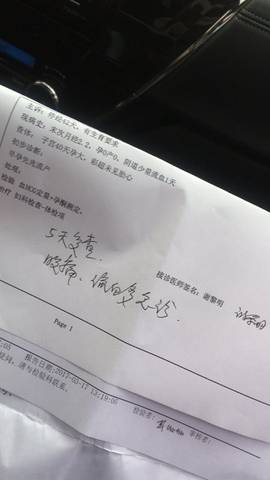 主诉：停经42天，有生育要求
现病史：末次月经2.2，孕0产0，阴道少量流血1天
查体：子宫40天孕大，彩超未见胎心
初步诊断：
早孕先兆流产
处理：
检验 血HCG定量+孕酮测定，
治疗 妇科检查-体检项
5天复查
腹痛、流血多急诊.
接诊医师签名：谢黎明
Page 1
报告日期:2017-03-17 13:19:06
疑问，请与检验科联系。
检验者:
审核者: